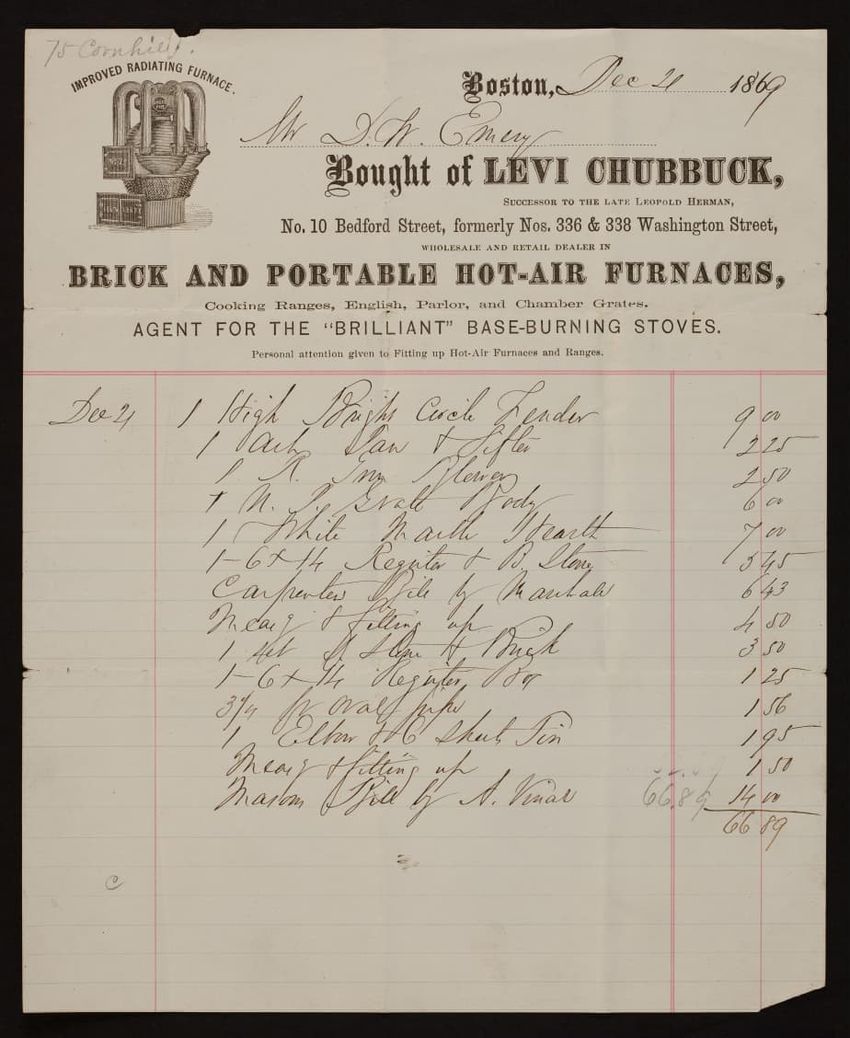 75 Cornhill.
IMPROVED RADIATING FURNACE.
Boston, Dec 21 1869
Mr D. W. Emery
Bought of LEVI CHUBBUCK,
SUCCESSOR TO THE LATE LEOPOLD HERMAN,
No. 10 Bedford Street, formerly Nos. 336 & 338 Washington Street,
WHOLESALE AND RETAIL DEALER IN
BRICK AND PORTABLE HOT-AIR FURNACES,
Cooking Ranges, English, Parlor, and Chamber Grates.
AGENT FOR THE "BRILLIANT" BASE-BURNING STOVES.
Personal attention given to Fitting up Hot-Air Furnaces and Ranges.
Dec 21 1 High Bright Circle Fender 9 00
1 Ash Pan & Sifter 2 25
1 R. Blower 2 50
1 N. P. Grate Body 6 00
1 White Marble Hearth 7 00
1-6x14 Register & B. Stone 5 45
Carpenters Bill by Marshall 6 43
& fitting up 4 50
1 set Stone & Brick 3 50
1-6x14 Register Box 1 25
oval pipe 1 56
1 Elbow & Sheet Tin 1 95
& fitting up 1 50
Masons Bill by A. Vinal 66.89 14 00
66 89